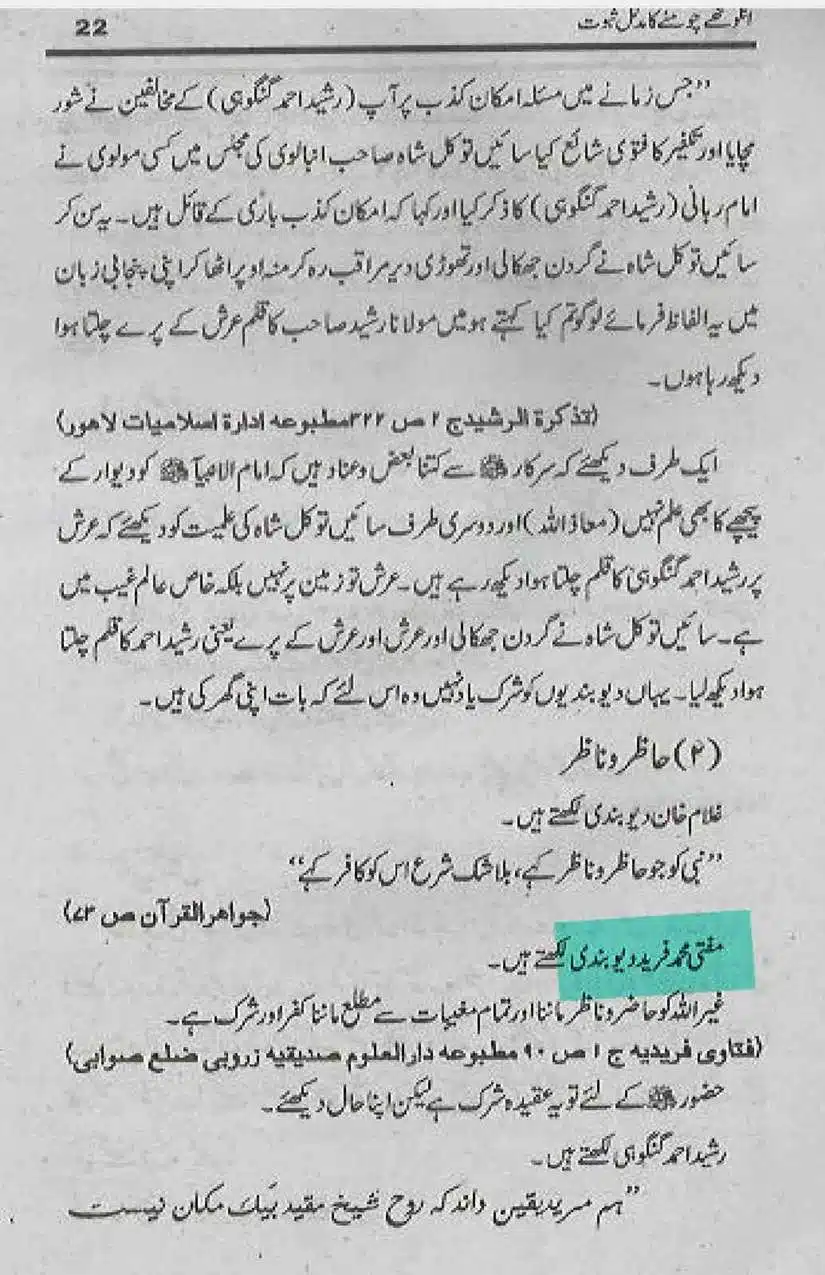 انگوٹھے چومنے کا مدلل ثبوت
22
”جس زمانے میں مسئلہ امکان کذب پر آپ (رشید احمد گنگوہی) کے مخالفین نے شور
مچایا اور تکفیر کا فتوٰی شائع کیا سائیں توکل شاہ صاحب انبالوی کی مجلس میں کسی مولوی نے
امام ربانی (رشید احمد گنگوہی) کا ذکر کیا اور کہا کہ امکان کذب باری کے قائل ہیں۔ یہ سن کر
سائیں توکل شاہ نے گردن جھکالی اور تھوڑی دیر مراقب رہ کر منہ اوپر اٹھا کر اپنی پنجابی زبان
میں یہ الفاظ فرمائے لوگو تم کیا کہتے ہو میں مولانا رشید صاحب کا قلم عرش کے پرے چلتا ہوا
دیکھ رہا ہوں۔
(تذکرۃ الرشید ج ۲ ص ۳۲۲ مطبوعہ ادارۃ اسلامیات لاھور)
ایک طرف دیکھئے کہ سرکار ﷺ سے کتنا بغض و عناد ہیں کہ امام الانبیآ ﷺ کو دیوار کے
پیچھے کا بھی علم نہیں (معاذ اللہ) اور دوسری طرف سائیں توکل شاہ کی علمیت کو دیکھئے کہ عرش
پر رشید احمد گنگوہی کا قلم چلتا ہوا دیکھ رہے ہیں۔ عرش تو زمین پر نہیں بلکہ خاص عالم غیب میں
ہے۔ سائیں توکل شاہ نے گردن جھکالی اور عرش اور عرش کے پرے یعنی رشید احمد کا قلم چلتا
ہوا دیکھ لیا۔ یہاں دیوبندیوں کو شرک یاد نہیں وہ اس لئے کہ بات اپنی گھر کی ہیں۔
(۲) حاظر و ناظر
غلام خان دیوبندی لکھتے ہیں۔
”نبی کو جو حاظر و ناظر کہے، بلا شک شرع اس کو کافر کہے“
(جواھر القرآن ص ۷۳)
مفتی محمد فرید دیوبندی لکھتے ہیں۔
غیر اللہ کو حاضر و ناظر ماننا اور تمام مغیبات سے مطلع ماننا کفر اور شرک ہے۔
(فتاوی فریدیہ ج ۱ ص ۹۰ مطبوعہ دار العلوم صدیقیہ زروبی ضلع صوابی)
حضور ﷺ کے لئے تو یہ عقیدہ شرک ہے لیکن اپنا حال دیکھئے۔
رشید احمد گنگوہی لکھتے ہیں۔
”ہم مرید بیقین داند کہ روح شیخ مقید بیک مکان نیست